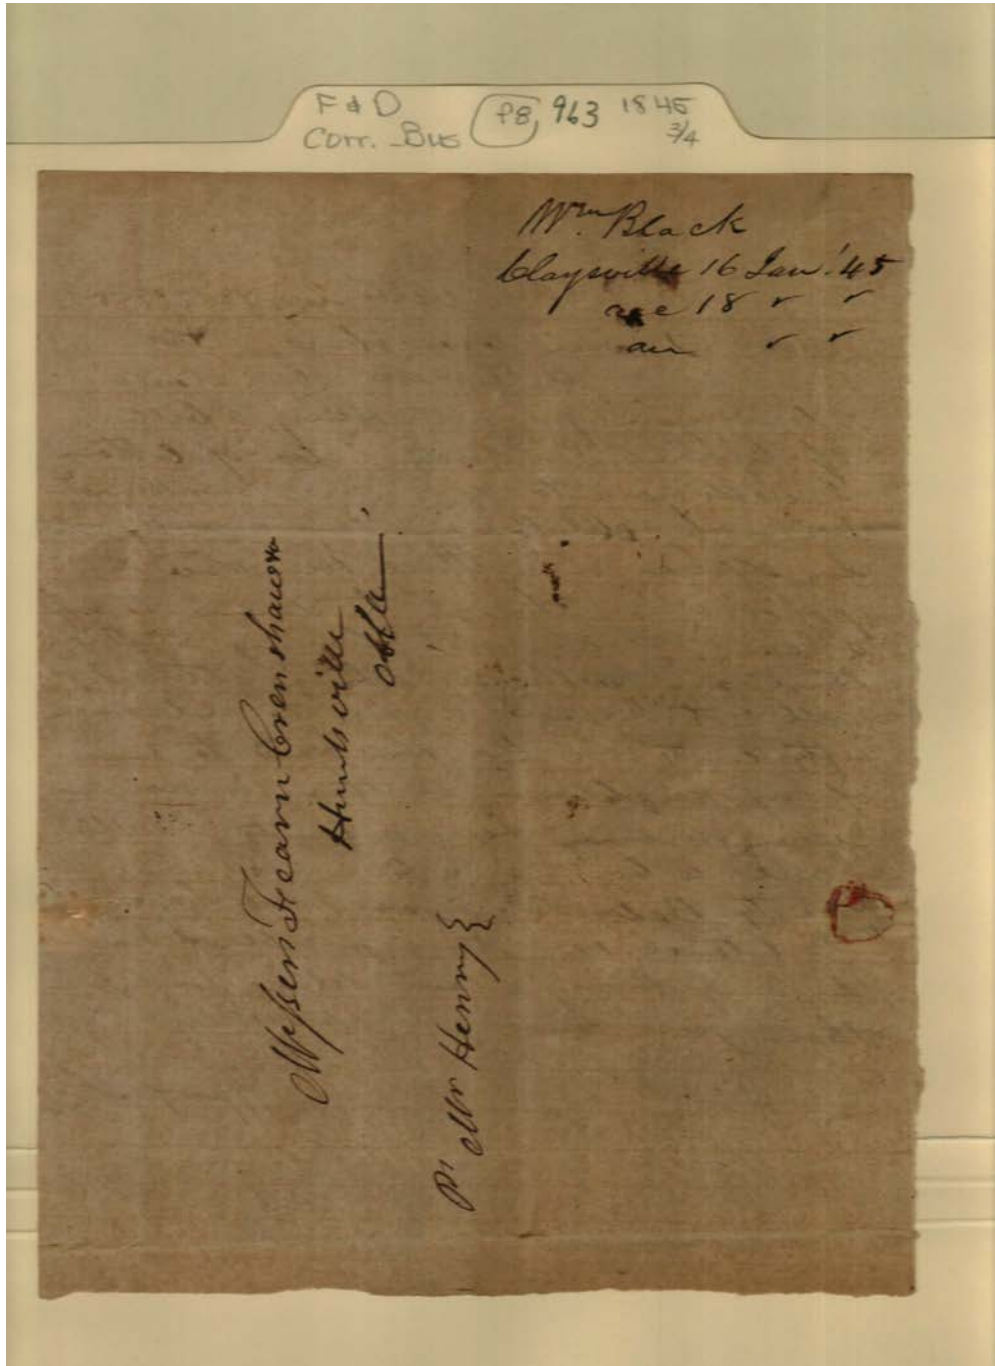 F & D
Corr. Bus
P8, 963 1845
3/4
Wm. Black
Claysville 16 Jan'. 45
rec 18 " "
an " "
Messrs Fearn Crenshaw &
Huntsville
Ala
Pr Mr Henry }